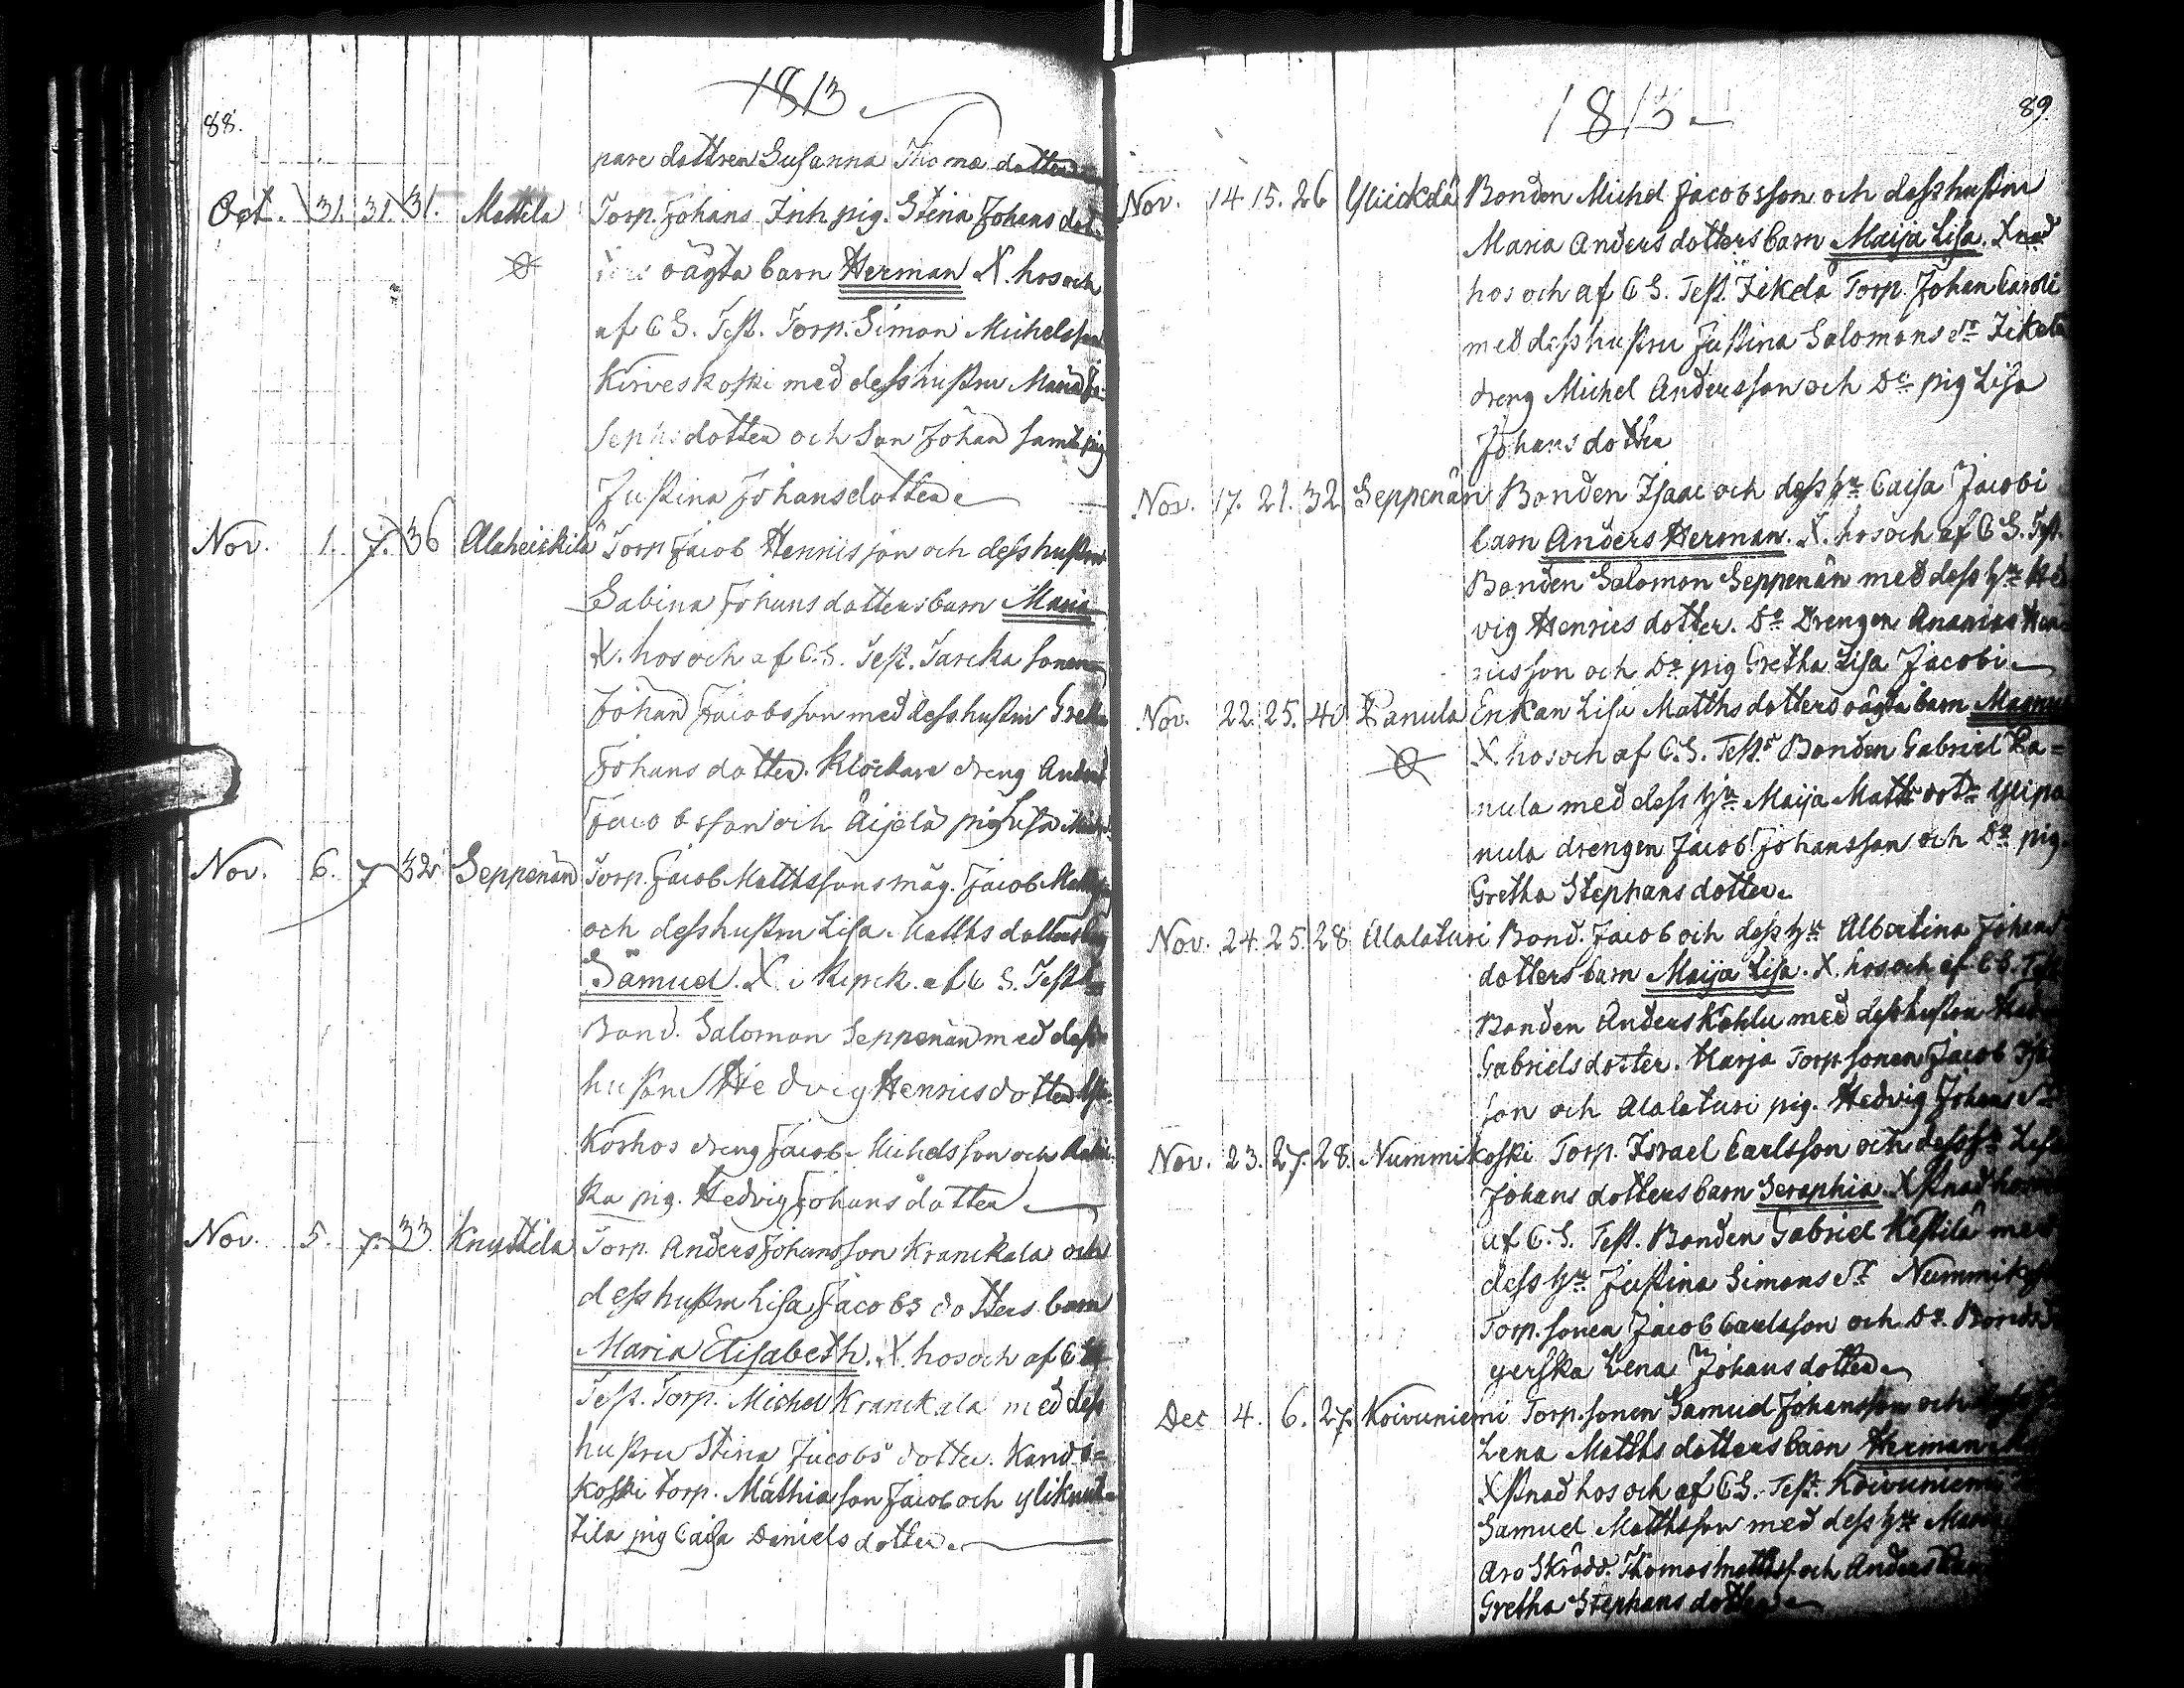 88.
1813.
pare dottren Susanna Thomædotter
Oct. 31. 31. 31. Mattila Torp. Johans Inh pig. Stina Johans dot
oägta barn Herman X. hos och
af C S. Test. Torp. Simon Michelsson
Kirveskoski med dess hustru Maria Jo
sephsdotter och Son Johan samt pig
Justina Johansdotter
Nov. 1. 7. 36 Alaheickilä Torp Jacob Henricsson och dess hustru
Sabina Johansdotters barn Maria
X. hos och af C. S. Test. Jarcka sonen
Johan Jacobsson med dess hustru Gretha
Johans dotter. Klockare dreng Anders
Jacobsson och Äijälä pig Lisa
Nov. 6. 7 32 Seppenän Torp. Jacob Matthssons måg. Jacob
och dess hustru Lisa Matths dotters
Samuel. X. i Kyrck. af C S. Test
Bond. Salomon Seppenän med dess
hustru Hedvig Henricsdotter
Korhos dreng Jacob Michelsson och
ka pig. Hedvig Johansdotter
Nov. 5. 7. 33 Knuttila Torp. Anders Johansson Kranckala och
dess hustru Lisa Jacobs dotters barn
Maria Elisabeth. X. hos och af C S
Test. Torp. Michel Kranckala med dess
hustru Stina Jacobs dotter. Kando=
koski torp. Mathias son Jacob och yliknut=
tila pig Caisa Daniels dotter.
1813
89.
Nov. 14. 15. 26 Yliickälä Bonden Michel Jacobsson och dess hustru
Maria Anders dotters barn Maija Lisa. Xnad
hos och af C S. Test. Torp. Johan Caroli
med dess hustru Justina Salomons dr
dreng Michel Andersson och Do pig Lisa
Johans dotter
Nov. 17. 21. 32 Seppenän Bonden Isaac och dess hu Caisa Jacobi
barn Anders Herman. X. hos och af C S. Tst.
Bonden Salomon Seppenän med dess hu Hed
vig Henrics dotter. Do Drengen Ananias Hen
ricsson och Do pig Gretha Lisa Jacobi
Nov. 22. 25. 40 Panula Enkan Lisa Matths dotters oägta barn Magnus
X. hos och af C. S. Test. Bonden Gabriel Pa=
nula med dess hu Maija Matts dotr Ylipa
nula drengen Jacob Johansson och Do pig.
Gretha Stephans dotter.
Nov. 24. 25. 28 Alalaturi Bond. Jacob och dess hu Albertina Johans
dotters barn Maija Lisa. X. hos och af C S. Tst
Bonden Anders Kohlu med dess hustru
Gabriels dotter. Harja Torp sonen Jacob
son och Alalaturi pig. Hedvig Johans dr
Nov. 23. 27. 28. Nummikoski Torp. Israel Carlsson och dess hu
Johans dotters barn Seraphia. Xstnad hos
af C. S. Test. Bonden Gabriel Kestilä med
dess hu Justina Simons dr Nummikoski
Torp. sonen Jacob Carlsson och Do
gerska Lena Johans dotter
Dec 4. 6. 27. Koivuniemi Torp. sonen Samuel Johansson och
Lena Matths dotters barn Herman
Xstnad hos och af C S. Test. Koivuniemi
Samuel Matthsson med dess hu Maria
Aro Skrädd. Thomas Mattsson och Anders
Gretha Stephans dotter